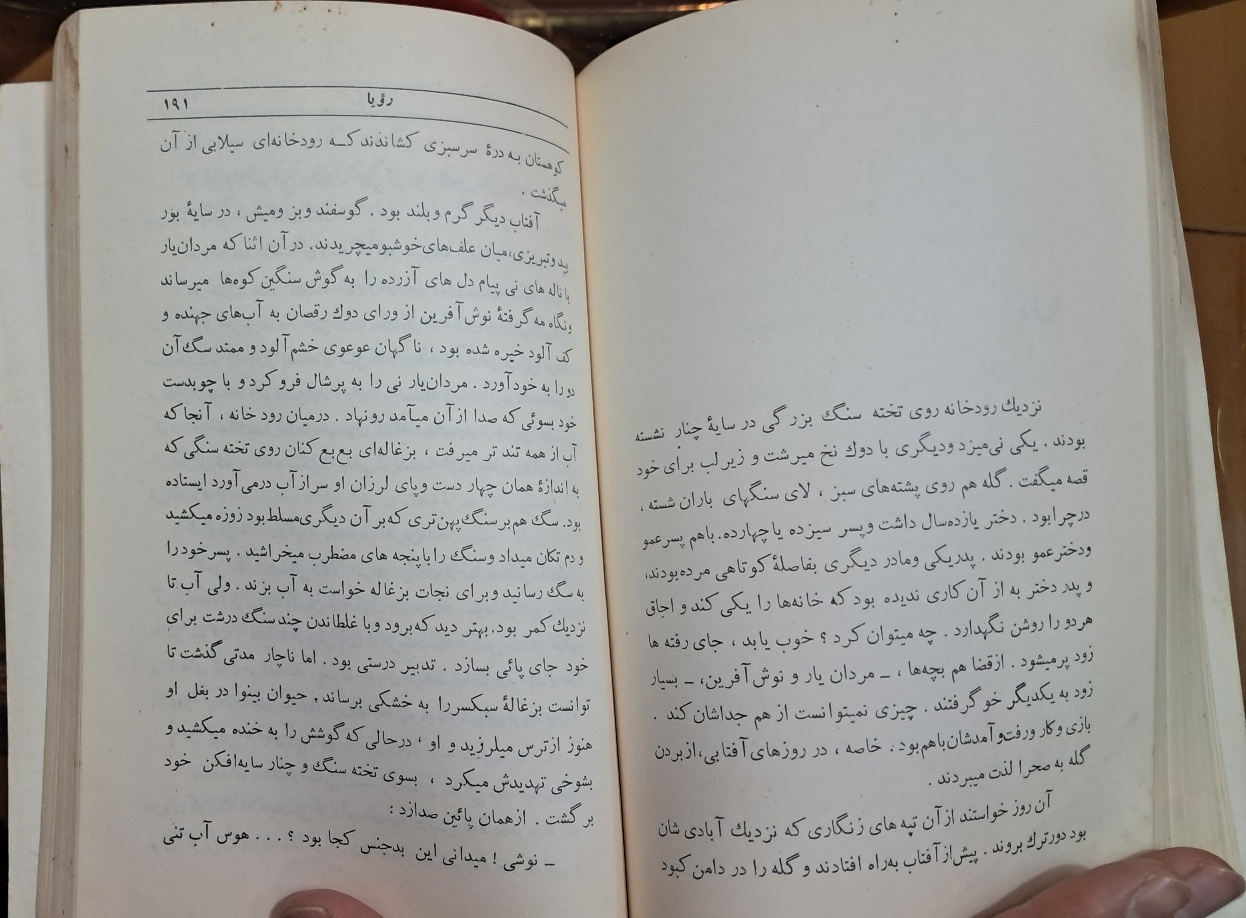 نزدیك رودخانه روی تخته سنگ بزرگی در سایهٔ چنار نشسته
بودند . یکی نی‌میزد ودیگری با دوك نخ میرشت و زیرلب برای خود
قصه میگفت . گله هم روی پشته‌های سبز ، لای سنگهای باران شسته ،
درچرا بود . دختر یازده‌سال داشت وپسر سیزده یاچهارده. باهم پسرعمو
ودخترعمو بودند . پدریکی ومادر دیگری بفاصلهٔ کوتاهی مرده بودند،
و پدر دختر به از آن کاری ندیده بود که خانه‌ها را یکی کند و اجاق
هردو را روشن نگهدارد . چه میتوان کرد ؟ خوب یا بد ، جای رفته ها
زود پرمیشود . ازقضا هم بچه‌ها ، ــ مردان یار و نوش آفرین، ــ بسیار
زود به یکدیگر خو گرفتند . چیزی نمیتوانست از هم جداشان کند .
بازی وکار ورفت‌وآمدشان باهم بود . خاصه ، در روزهای آفتابی، از بردن
گله به صحرا لذت میبردند .
آن روز خواستند از آن تپه های زنگاری که نزدیك آبادی شان
بود دورترك بروند . پیش از آفتاب به‌راه افتادند و گله را در دامن کبود
رؤیا ۱۹۱
کوهستان به درهٔ سرسبزی کشاندند کـه رودخانه‌ای سیلابی از آن
میگذشت .
آفتاب دیگر گرم وبلند بود . گوسفند وبز ومیش ، در سایهٔ بور
بید وتبریزی، میان علف‌های خوشبو میچریدند. در آن اثنا که مردان‌یار
با ناله های نی پیام دل های آزرده را به گوش سنگین کوه‌ها میرساند
ونگاه مه گرفتهٔ نوش آفرین از ورای دوك رقصان به آب‌های جهنده و
کف آلود خیره شده بود ، ناگهان عوعوی خشم آلود و ممتد سگ آن
دو را به خود آورد . مردان‌یار نی را به پرشال فرو کرد و با چوبدست
خود بسوئی که صدا از آن میآمد رونهاد . درمیان رودخانه ، آنجا که
آب از همه تند تر میرفت ، بزغاله‌ای بع‌بع کنان روی تخته سنگی که
به اندازهٔ همان چهار دست وپای لرزان او سر از آب درمی‌آورد ایستاده
بود. سگ هم بر سنگ پهن‌تری که بر آن دیگری مسلط بود زوزه میکشید
و دم تکان میداد وسنگ را با پنجه های مضطرب میخراشید . پسر خود را
به سگ رسانید وبرای نجات بزغاله خواست به آب بزند . ولی آب تا
نزدیك کمر بود. بهتر دید که برود وبا غلطاندن چند سنگ درشت برای
خود جای پائی بسازد . تدبیر درستی بود . اما ناچار مدتی گذشت تا
توانست بزغالهٔ سبکسر را به خشکی برساند . حیوان بینوا در بغل او
هنوز از ترس میلرزید و او ، درحالی که گوشش را به خنده میکشید و
بشوخی تهدیدش میکرد ، بسوی تخته سنگ و چنار سایه‌افکن خود
بر گشت . از همان پائین صدا زد :
ــ نوشی ! میدانی این بدجنس کجا بود ؟ . . . هوس آب تنی